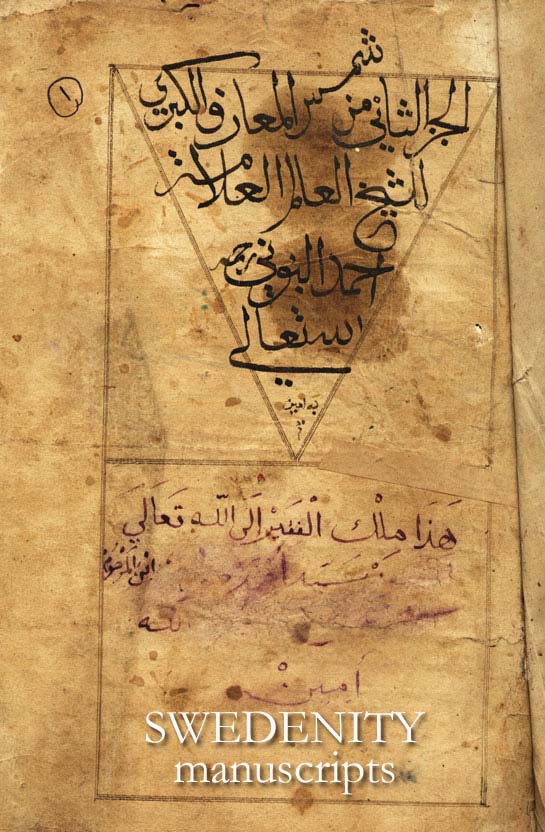 ١
الجزء الثاني من شمس المعارف الكبرى
للشيخ العالم العلامة
احمد البوني رحمه
الله تعالى
به امين
هَذَا مِلْك الفَقِيْر اِلَى اللّه تَعَالَي
ابن المرحوم
اَمِيْن
SWEDENITY
manuscripts